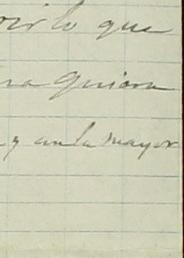 rir lo que
ra quiera
y en la mayor